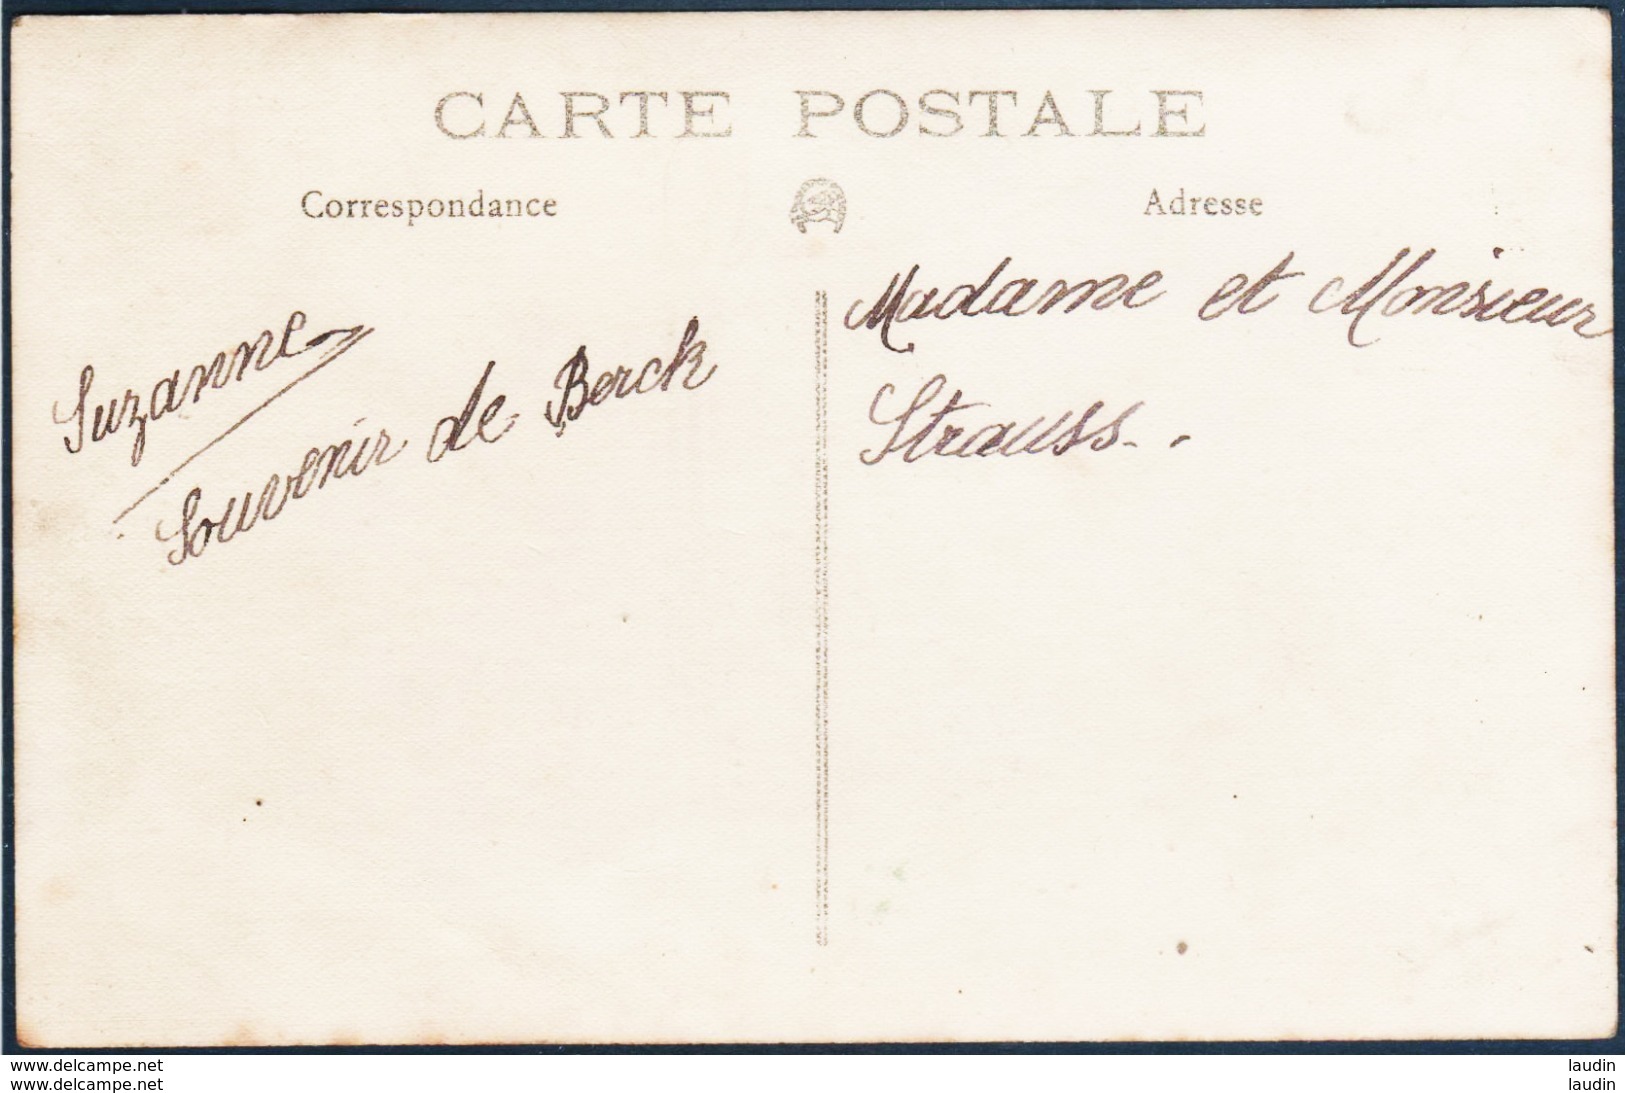 CARTE POSTALE
Correspondance
Adresse
Suzanne
Souvenir de Berck
Madame et Monsieur
Strauss.
www.delcampe.net
laudin
www.delcampe.net
laudin